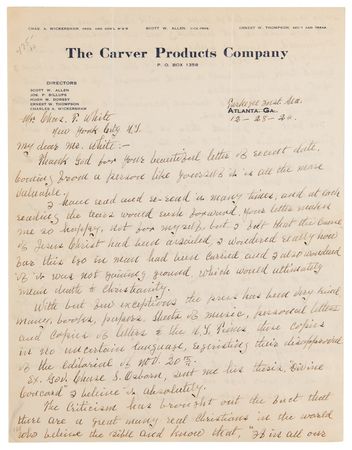 CHAS. A. WICKERSHAM, PRES. AND GEN'L MGR. SCOTT W. ALLEN, VICE PRES. ERNEST W. THOMPSON, SEC'Y AND TREAS.
The Carver Products Company
P. O. BOX 1358
DIRECTORS
SCOTT W. ALLEN
JOS. P. BILLUPS
HUGH M. DORSEY
ERNEST W. THOMPSON
CHARLES A. WICKERSHAM
Tuskegee Inst. Ala.
ATLANTA, GA.
12-28-24.
Mr. Chas. P. White
New York City N.Y.
My dear Mr. White:-
Thank God for your beautiful letter of recent date,
coming from a person like yourself it is all the more
valuable.
I have read and re-read it many times, and at each
reading the tears would rush forward, your letter makes
me so happy, not for myself, but I felt that the cause
of Jesus Christ had been assailed, I wondered really how
far this ego in man had been carried and I also wondered
if it was not gaining ground, which would ultimately
mean death to Christianity.
With but few exceptions the press has been very kind
many, books, papers, sheets of music, personal letters
and copies of letters to the N.Y. Times, these copies
in no uncertain language, expressing their disapproval
of the editorial of Nov. 20th.
Ex. Gov. Chase S. Osborn, sent me his thesis, "Divine
Concord" I believe it absolutely.
The Criticism has brought out the fact that
there are a great many real christians in the world
who believe the Bible and know that, "If in all our